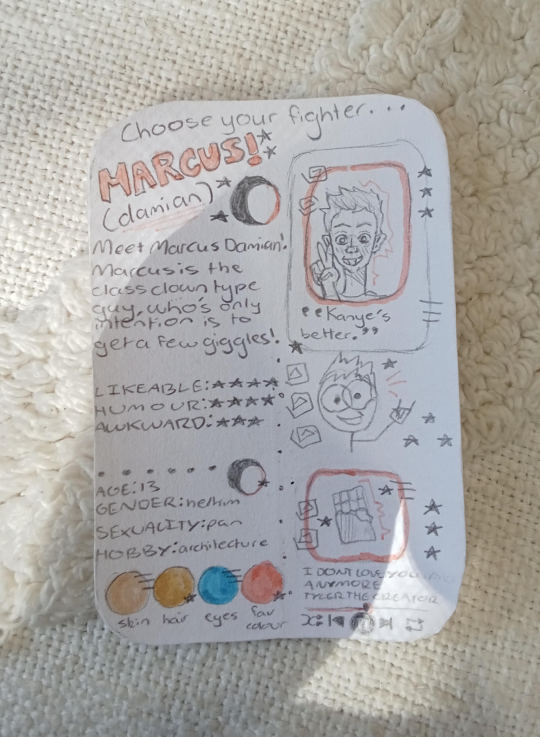 Choose your fighter...
MARCUS!
(damian)
Meet Marcus Damian!
Marcus is the
class clown type
guy, who's only
intention is to
get a few giggles!
LIKEABLE:★★★★
HUMOUR:★★★★
AWKWARD:★★★
AGE:13
GENDER:he/him
SEXUALITY:pan
HOBBY:architecture
skin hair eyes fav
colour
"Kanye's
better."
I DONT LOVE YOU
ANYMORE
TYLER THE CREATOR